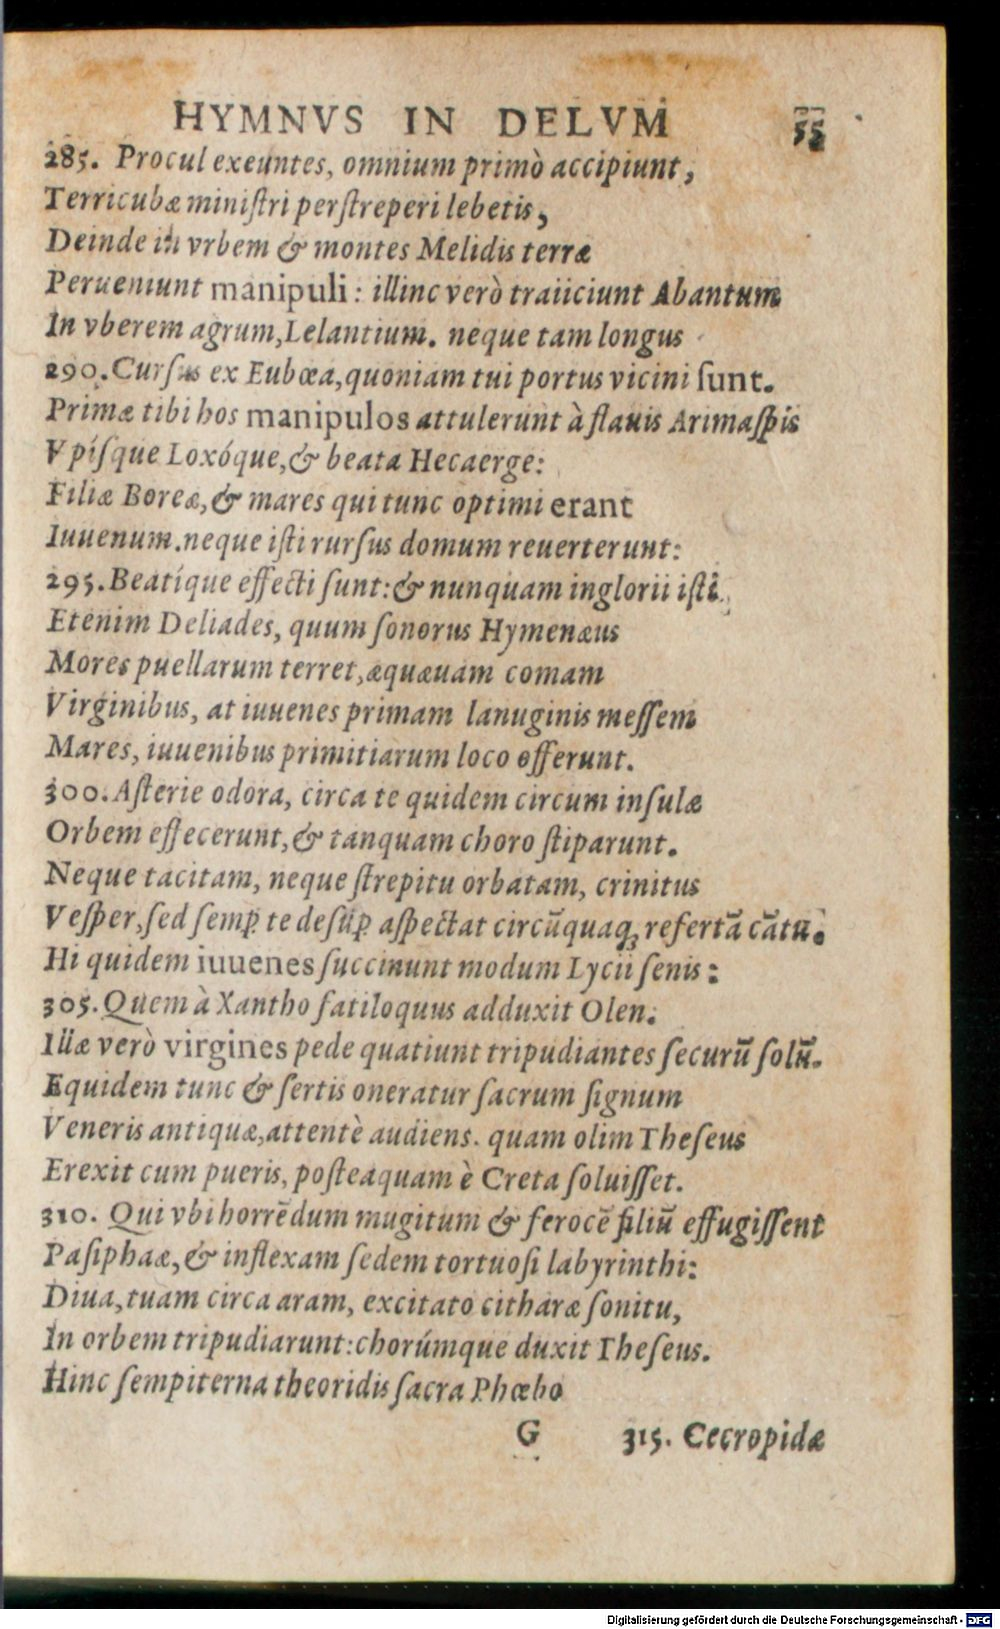 HYMNVS IN DELVM 55
285. Procul exeuntes, omnium primò accipiunt,
Terricubæ miniſtri perſtreperi lebetis,
Deinde in vrbem & montes Melidis terræ
Perueniunt manipuli: illinc verò traiiciunt Abantum
In vberem agrum, Lelantium. neque tam longus
290. Curſus ex Eubœa, quoniam tui portus vicini ſunt.
Primæ tibi hos manipulos attulerunt à flauis Arimaſpis
Vpíſque Loxóque, & beata Hecaerge:
Filiæ Boreæ, & mares qui tunc optimi erant
Iuuenum. neque iſti rurſus domum reuerterunt:
295. Beatíque effecti ſunt: & nunquam inglorii iſti.
Etenim Deliades, quum ſonorus Hymenæus
Mores puellarum terret, æquæuam comam
Virginibus, at iuuenes primam lanuginis meſſem
Mares, iuuenibus primitiarum loco offerunt.
300. Aſterie odora, circa te quidem circum inſulæ
Orbem effecerunt, & tanquam choro ſtiparunt.
Neque tacitam, neque ſtrepitu orbatam, crinitus
Veſper, ſed semꝑ te deſuꝑ aſpectat circũquaqꝫ refertã cãtu.
Hi quidem iuuenes ſuccinunt modum Lycii ſenis:
305. Quem à Xantho fatiloquus adduxit Olen.
Illæ verò virgines pede quatiunt tripudiantes ſecurũ ſolũ.
Equidem tunc & ſertis oneratur ſacrum ſignum
Veneris antiquæ, attentè audiens. quam olim Theſeus
Erexit cum pueris, poſteaquam è Creta ſoluiſſet.
310. Qui vbi horrẽdum mugitum & ferocẽ filiũ effugiſſent
Paſiphaæ, & inflexam ſedem tortuoſi labyrinthi:
Diua, tuam circa aram, excitato citharæ ſonitu,
In orbem tripudiarunt: chorúmque duxit Theſeus.
Hinc ſempiterna theoridis ſacra Phœbo
G 315. Cecropidæ
Digitalisierung gefördert durch die Deutsche Forschungsgemeinschaft - DFG